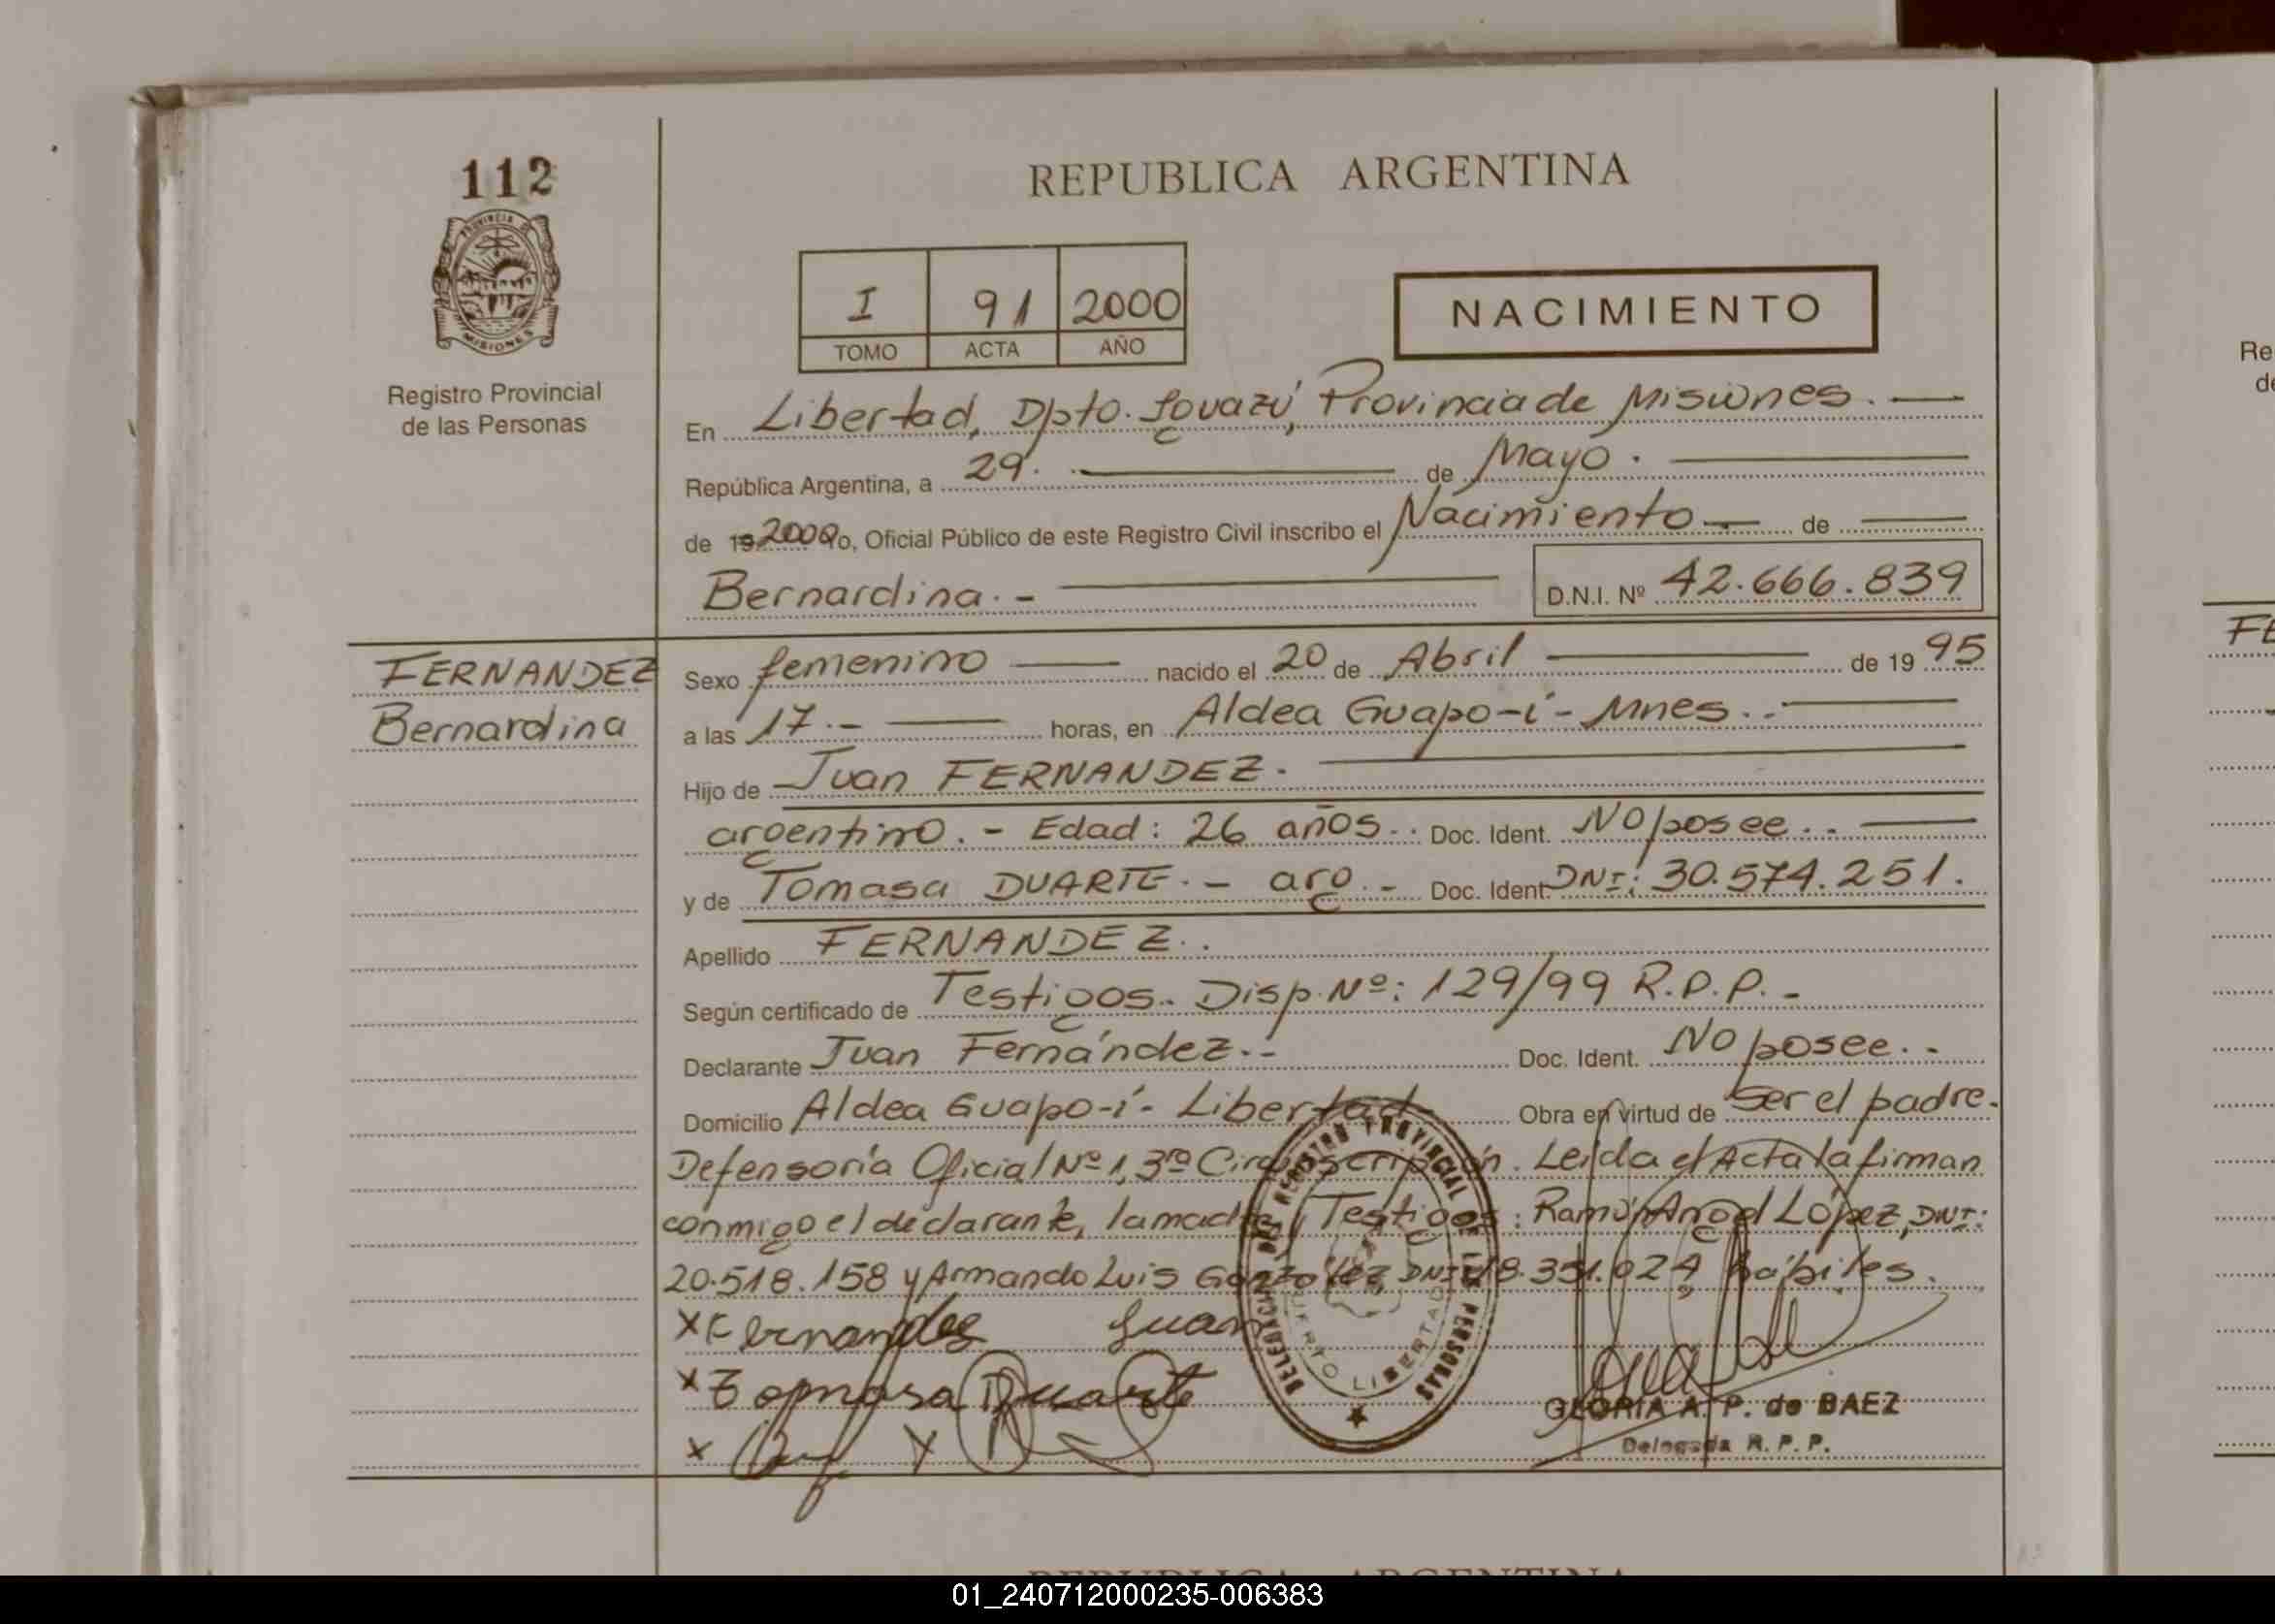 112
PROVINCIA DE
MISIONES
Registro Provincial
de las Personas
REPUBLICA ARGENTINA
I 91 2000
TOMO ACTA AÑO
NACIMIENTO
En Libertad, Dpto. Iguazú, Provincia de Misiones. —
República Argentina, a 29. — de Mayo. —
de 19 2000 Yo, Oficial Público de este Registro Civil inscribo el Nacimiento — de —
Bernardina. - — D.N.I. Nº 42.666.839
FERNANDEZ
Bernardina
Sexo femenino — nacido el 20 de Abril — de 19 95
a las 17. - — horas, en Aldea Guapo-í - Mnes. - —
Hijo de Juan FERNANDEZ. —
argentino. - Edad: 26 años. . Doc. Ident. No posee. . —
y de Tomasa DUARTE. - arg. - Doc. Ident. DNI: 30.574.251.
Apellido FERNANDEZ. .
Según certificado de Testigos. Disp. Nº: 129/99 R.P.P. -
Declarante Juan Fernández. - Doc. Ident. No posee. -
Domicilio Aldea Guapo-í - Libertad Obra en virtud de Ser el padre.
Defensoría Oficial Nº 1, 3ra Circunscripción. Leída el Acta la firman
conmigo el declarante, la madre y Testigos: Ramón Angel López, DNI:
20.518.158 y Armando Luis González, DNI: 18.351.024 hábiles.
X Fernandez Juan
X Tomasa Duarte
X Y
DELEGACION DEL REGISTRO PROVINCIAL DE LAS PERSONAS
PUERTO LIBERTAD
GLORIA A. P. de BAEZ
Delegada R. P. P.
REPUBLICA ARGENTINA
Re
de
FE
01_240712000235-006383